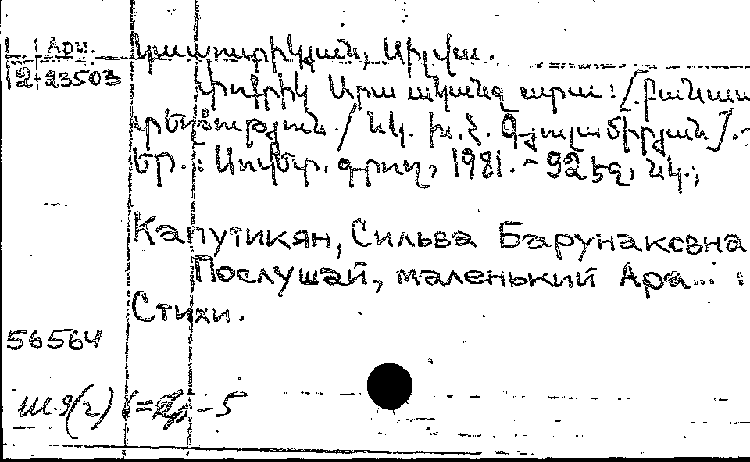 Арм.
2-23503
Կապուտիկյան, Սիլվա.
Փոքրիկ Արա ականջ արա: /Բանաս-
տեղծություն / Նկ. Խ. Հ. Գյուլամիրյան/. -
Եր.: Սովետ. գրող, 1981. - 92 էջ, նկ.;
Капутикян, Сильва Барунаковна
Послушай, маленький Ара... :
Стихи.
56564
- 5